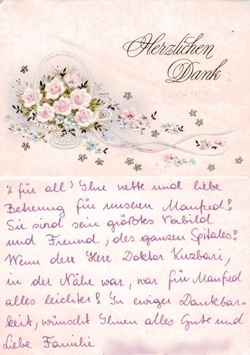 Herzlichen
Dank
% für all! Ihre nette und liebe
Betreuung für unseren Manfred!
Sie sind sein größtes Vorbild
und Freund, des ganzen Spitales!
Wenn der Herr Doktor Kuzbari,
in der Nähe war, war für Manfred
alles leichter! In ewiger Dankbar-
keit, wünscht Ihnen alles Gute und
Liebe Familie